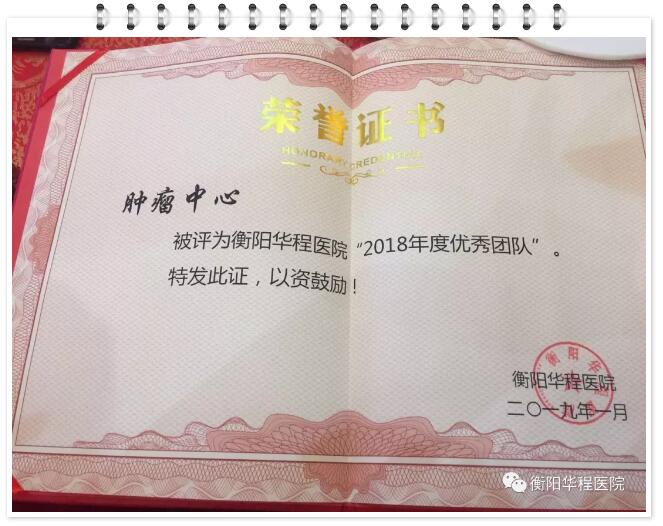 荣誉证书
HONORARY CREDENTIAL
肿瘤中心
被评为衡阳华程医院“2018年度优秀团队”。
特发此证，以资鼓励！
衡阳华程医院
二〇一九年一月
衡阳华程医院